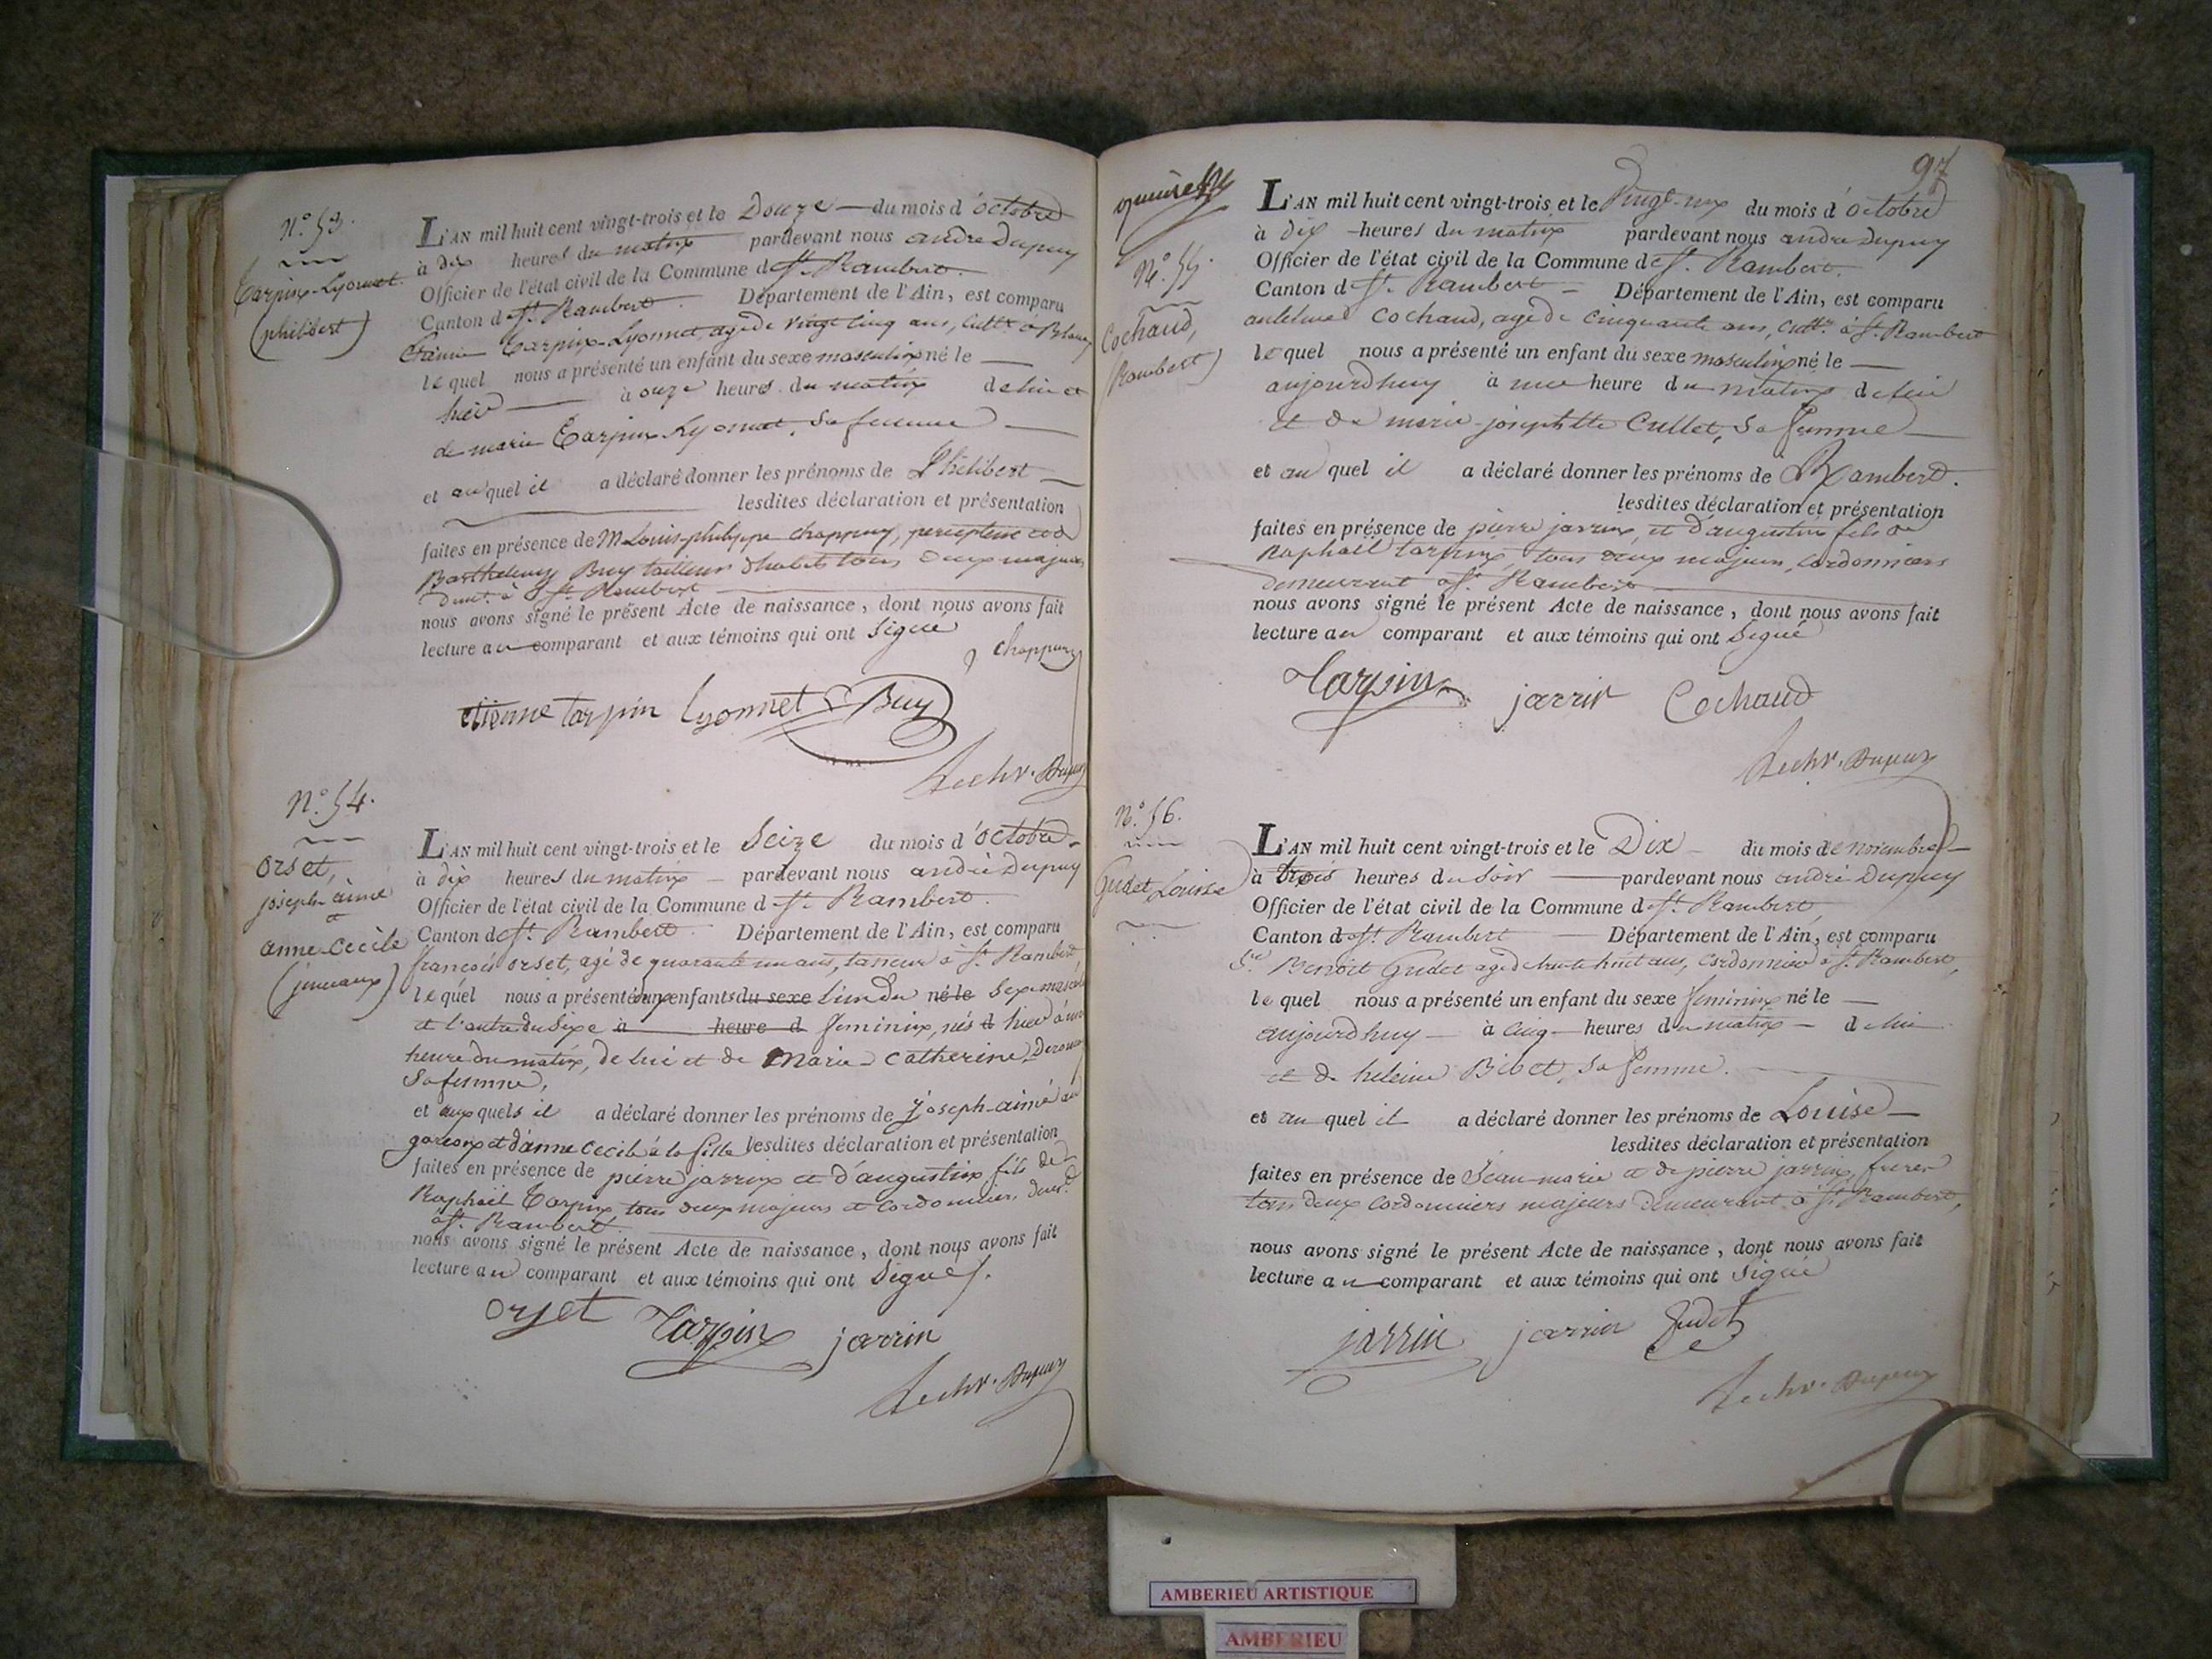 N.° 53.
Tarpin-Lyonnet
(philibert)
L'AN mil huit cent vingt-trois et le Douze du mois d'octobre
à dix heures du matin pardevant nous andré Dupuy
Officier de l'état civil de la Commune de St. Rambert.
Canton de St. Rambert. Département de l'Ain, est comparu
Etienne Tarpin-Lyonnet, agé de vingt cinq ans, cultr. à
lequel nous a présenté un enfant du sexe masculin né le
hier à onze heures du matin de lui et
de marie Tarpin Lyonnet, sa femme
et auquel il a déclaré donner les prénoms de Philibert
lesdites déclaration et présentation
faites en présence de M Louis-philippe chappuy, percepteur et de
Barthelemy Buy tailleur d'habits tous deux majeurs
demt. à St. Rambert
nous avons signé le présent Acte de naissance, dont nous avons fait
lecture au comparant et aux témoins qui ont signé
chappuy
etienne tarpin lyonnet Buy
Dupuy
N.° 54.
orset,
joseph-aimé
et
anne-Cecile
(jumeaux)
L'AN mil huit cent vingt-trois et le Seize du mois d'octobre
à dix heures du matin pardevant nous andré Dupuy
Officier de l'état civil de la Commune de St. Rambert.
Canton de St. Rambert. Département de l'Ain, est comparu
françois orset, agé de quarante un ans, tanneur à St. Rambert,
lequel nous a présenté deux enfants du sexe l'un du né le sexe masculin
et l'autre du sexe à heure d feminin, nés d hier à une
heure du matin, de lui et de Marie-Catherine
sa femme,
et auxquels il a déclaré donner les prénoms de joseph-aimé au
garçon et d'anne Cecile à la fille lesdites déclaration et présentation
faites en présence de pierre jarrin et d'augustin fils de
Raphaël Tarpin tous deux majeurs et cordonniers demt.
à St. Rambert
nous avons signé le présent Acte de naissance, dont nous avons fait
lecture au comparant et aux témoins qui ont signés.
orset Tarpin jarrin
Dupuy
97
N.° 55.
Cochaud,
(Rambert)
L'AN mil huit cent vingt-trois et le Vingt-un du mois d'octobre
à dix heures du matin pardevant nous andré Dupuy
Officier de l'état civil de la Commune de St. Rambert.
Canton de St. Rambert Département de l'Ain, est comparu
antelme Cochaud, agé de cinquante ans, cultr. à St. Rambert
lequel nous a présenté un enfant du sexe masculin né le
aujourdhuy à une heure du matin de lui
et de marie-josephtte Cullet, sa femme
et auquel il a déclaré donner les prénoms de Rambert.
lesdites déclaration et présentation
faites en présence de pierre jarrin, et d'augustin fils de
Raphaël tarpin, tous deux majeurs, cordonniers
demeurant à St. Rambert
nous avons signé le présent Acte de naissance, dont nous avons fait
lecture au comparant et aux témoins qui ont signé
Tarpin jarrin Cochaud
Dupuy
N.° 56.
Gudet Louise
L'AN mil huit cent vingt-trois et le Dix du mois de novembre
à trois heures du soir pardevant nous andré Dupuy
Officier de l'état civil de la Commune de St. Rambert
Canton de St. Rambert Département de l'Ain, est comparu
Sr. Benoit Gudet agé de trente huit ans, cordonnier à St. Rambert,
lequel nous a présenté un enfant du sexe feminin né le
aujourdhuy à cinq heures du matin de lui
et de heleine Bibet, sa femme.
et auquel il a déclaré donner les prénoms de Louise
lesdites déclaration et présentation
faites en présence de Jean-marie et de pierre jarrin, freres
tous deux cordonniers majeurs demeurant à St. Rambert,
nous avons signé le présent Acte de naissance, dont nous avons fait
lecture au comparant et aux témoins qui ont signé
jarrin jarrin Gudet
Dupuy
AMBERIEU ARTISTIQUE
AMBERIEU